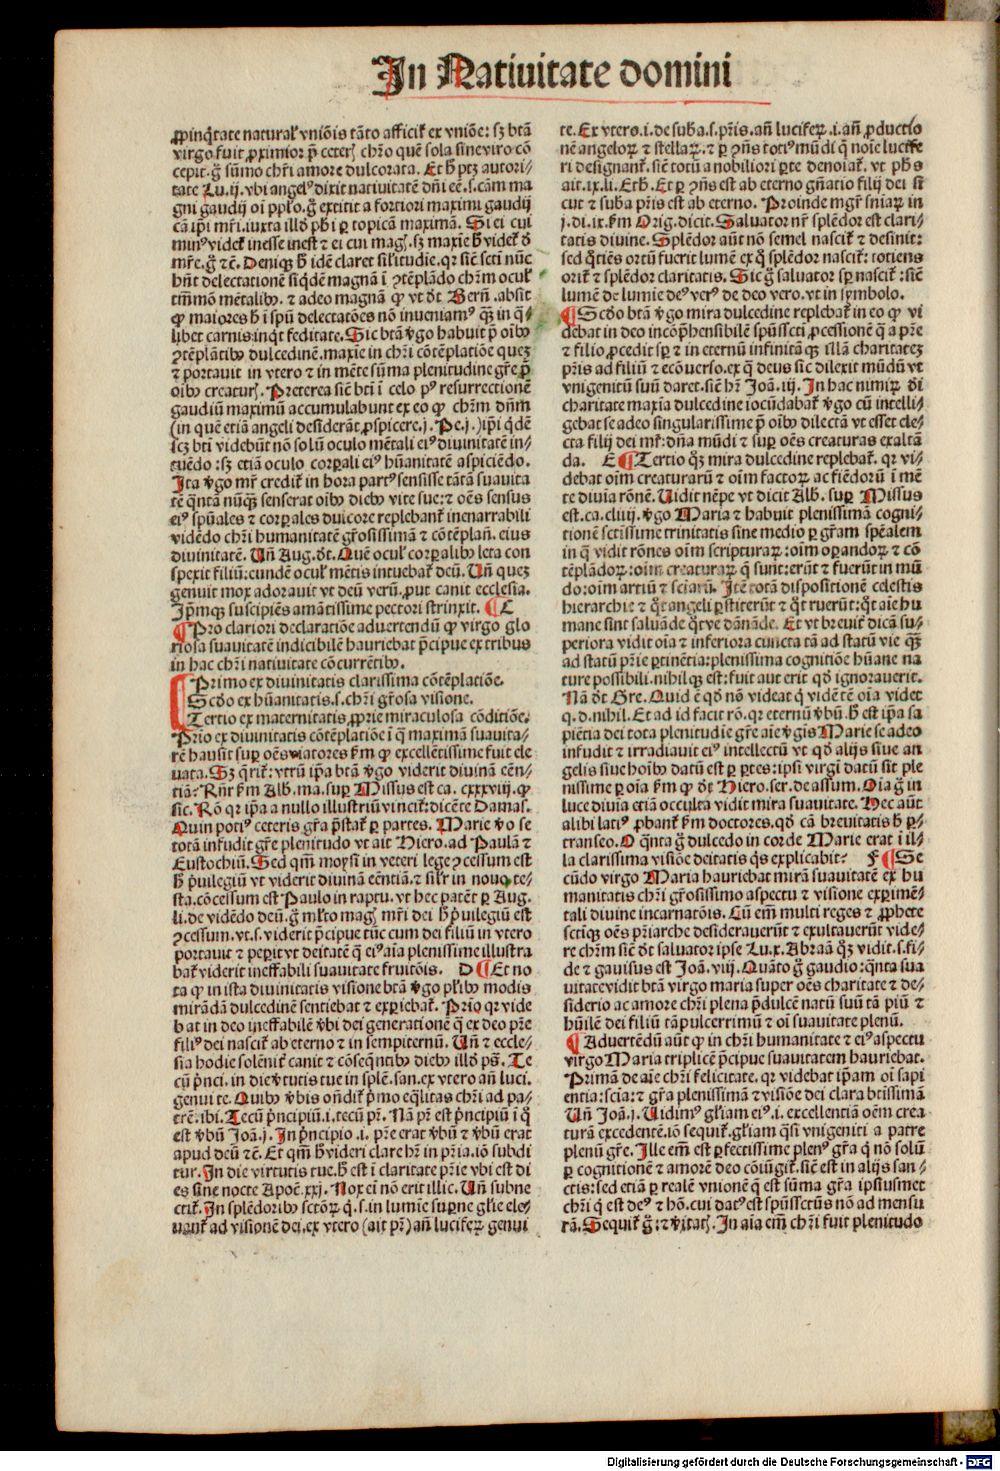 In Natiuitate domini
ꝓpinq̄tate natural᷒ vniõis tãto afficit᷒ ex vniõe: sꝫ btã
virgo fuit ꝓximior p̄ ceter᷒ chr̃o quẽ sola sine viro cõ
cepit. g̃ sũmo chr̃i amore dulcorata. Et h̃ ptꝫ autori⸗
tate Lu.ij. vbi angelꝰ dixit natiuitatẽ dñi eẽ .s. cãm ma
gni gaudij oĩ pplõ. g̃ extitit a fortiori maximi gaudij
cã ip̃i mr̃i. iuxta illd̃ ph̃i ꝑ topicã maximã. Si ei cui
minꝰ videt᷒ inesse inest ⁊ ei cui mag᷒. sꝫ maxie h̃ videt᷒ d̃
mr̃e. g̃ ⁊c̃. Deniqꝫ h̃ idẽ claret sil̃itudie. qr sicẽ scti nũc
hñt delectationẽ siq̃dẽ magnã ĩ ꝯtẽplãdo chr̃m ocul᷒
tm̃mõ mẽtalibꝰ. ⁊ adeo magnã ꝙ vt dt̃ Bern̄. absit
ꝙ maiores h̃ ĩ spũ delectatões nõ inueniamꝰ qꝫ in q̃⸗
libet carnis: inqt feditate. Sic btã v̄go habuit p̄ oĩbꝰ
ꝯtẽplãtibꝰ dulcedinẽ. maxie in chr̃i cõtẽplatiõe quez
⁊ portauit in vtero ⁊ in mẽte sũma plenitudine gr̃e p̄
oĩbꝰ creatur᷒. Preterea sicẽ bti ĩ celo pꝰ resurrectionẽ
gaudiũ maximũ accumulabunt ex eo ꝙ chr̃m dñm
(in quẽ etiã angeli desiderãt ꝓspicere .j. Pe.j.) ip̃i q̃dẽ
scꝫ bti videbũt nõ solũ oculo mẽtali eiꝰ diuinitatẽ in⸗
tuẽdo: sꝫ etiã oculo corꝑali eiꝰ hũanitatẽ aspiciẽdo.
Ita v̄go mr̃ credit᷒ in hora partꝰ sensisse tãtã suauita
tẽ q̃ntã nũqꝫ senserat oĩbꝰ diebꝰ vite sue: ⁊ oẽs sensus
eiꝰ spũales ⁊ corꝑales dulcore replebant᷒ inenarrabili
vidẽdo chr̃i humanitatẽ gr̃osissimã ⁊ cõtẽplañ. eius
diuinitatẽ. Un̄ Aug. dt̃. Quẽ ocul᷒ corꝑalibꝰ leta con
spexit filiũ: eundẽ ocul᷒ mẽtis intuebat᷒ deũ. Un̄ quez
genuit mox adorauit vt deũ verũ. ꝓut canit ecclesia.
Ip̃mqꝫ suscipiẽs amãtissime pectori strinxit. ¶ C
¶ Pro clariori declaratiõe aduertendũ ꝙ virgo glo
riosa suauitatẽ indicibilẽ hauriebat p̃cipue ex tribus
in hac chr̃i natiuitate cõcurrẽtibꝰ.
Primo ex diuinitatis clarissima cõtẽplatiõe.
Scd̃o ex hũanitatis .s. chr̃i gr̃osa visione.
Tertio ex maternitatis ꝓprie miraculosa cõditiõe.
Prĩo ex diuinitatis cõtẽplatiõe ĩ q̃ maximã suauita⸗
tẽ hausit suꝑ oẽs viatores fm̃ ꝙ excellẽtissime fuit ele
uata. Sꝫ q̃rit᷒: vtrũ ip̃a btã v̄go viderit diuinã eẽn⸗
tiã. Rñr fm̃ Alb. ma. suꝑ Missus est ca. cxxxviij. ꝙ
sic. Rõ qr ip̃a a nullo illustriũ vincit᷒: dicẽte Damas.
Quin potiꝰ ceteris gr̃a p̃stat᷒ ꝑ partes. Marie v̄o se
totã infudit gr̃e plenitudo vt ait Hiero. ad Paulã ⁊
Eustochiũ. Sed qm̃ moysi in veteri lege ꝯcessum est
h̃ p̃uilegiũ vt viderit diuinã eẽntiã. ⁊ sil̃r in nouo te⸗
sta. cõcessum est Paulo in raptu. vt hec patẽt ꝑ Aug.
li. de vidẽdo deũ. g̃ ml̃to mag᷒ mr̃i dei h̃ p̃uilegiũ est
ꝯcessum. vt .s. viderit p̃cipue tũc cum dei filiũ in vtero
portauit ⁊ peꝑit vt deitatẽ q̃ eiꝰ aĩa plenissime illustra
bat᷒ viderit ineffabili suauitate fruitõis. D ¶ Et no
ta ꝙ in ista diuinitatis visione btã v̄go pl̃ibꝰ modis
mirãdã dulcedinẽ sentiebat ⁊ exꝑiebat᷒. Prĩo qr vide
bat in deo ineffabilẽ v̄bi dei generationẽ q̃ ex deo pr̃e
filiꝰ dei nascit᷒ ab eterno ⁊ in sempiternũ. Un̄ ⁊ eccle⸗
sia hodie solẽnit᷒ canit ⁊ cõseqñtibꝰ diebꝰ illd̃ ps̃. Te
cũ p̃nci. in die v̄tutis tue in splẽ. san. ex vtero añ luci.
genui te. Quibꝰ v̄bis oñdit᷒ p̃mo eq̃litas chr̃i ad pa⸗
trẽ. ibi. Tecũ p̃ncipiũ .i. tecũ pr̃. Nã pr̃ est p̃ncipiũ ĩ q̃
est v̄bũ Joã.j. In p̃ncipio .i. pr̃e erat v̄bũ ⁊ v̄bũ erat
apud deũ ⁊c̃. Et qm̃ h̃ videri clare hr̃ in pr̃ia. iõ subdi
tur. In die virtutis tue. h̃ est ĩ claritate pr̃ie vbi est di
es sine nocte Apoc̃. xxj. Nox ei nõ erit illic. Un̄ subne
ctit᷒. In splẽdoribꝰ sctõꝝ q̃ .s. in lumie suꝑne gl̃ie ele⸗
uant᷒ ad visionẽ dei. ex vtero (ait pr̃) añ luciferꝝ genui
te. Ex vtero .i. de suba .s. pr̃is. añ luciferꝝ .i. añ ꝓductio
nẽ angeloꝝ ⁊ stellaꝝ. ⁊ ꝑ ꝯñs totiꝰ mũdi q̃ noĩe lucife
ri designant᷒. sicẽ totũ a nobiliori ꝑte denoiat᷒. vt ph̃s
ait. ix. li. Eth̃. Et ꝑ ꝯñs est ab eterno gñatio filij dei si
cut ⁊ suba pr̃is est ab eterno. Proinde mgr̃ sniaꝝ in
j. di. ix. fm̃ Orig. dicit. Saluator nr̃ splẽdor est clari⸗
tatis diuine. Splẽdor aũt nõ semel nascit᷒ ⁊ desinit:
sed q̃tiẽs ortũ fuerit lumẽ ex q̃ splẽdor nascit᷒: totiens
orit᷒ ⁊ splẽdor claritatis. Sic g̃ saluator sꝑ nascit᷒: sicẽ
lumẽ de lumie deꝰ verꝰ de deo vero. vt in symbolo.
¶ Scd̃o btã v̄go mira dulcedine replebat᷒ in eo ꝙ vi
debat in deo incõp̃hensibilẽ spũssctĩ ꝓcessionẽ q̃ a pr̃e
⁊ filio ꝓcedit sꝑ ⁊ in eternũ infinitãqꝫ illã charitatez
pr̃is ad filiũ ⁊ ecõuerso. ex q̃ deus sic dilexit mũdũ vt
vnigenitũ suũ daret. sicẽ hr̃ Joã. iij. In hac nimiꝝ di
charitate maxĩa dulcedine iocũdabat᷒ v̄go cũ intelli⸗
gebat se adeo singularissime p̄ oĩbꝰ dilectã vt esset ele⸗
cta filij dei mr̃: dña mũdi ⁊ suꝑ oẽs creaturas exaltã
da. E ¶ Tertio qꝫ mira dulcedine replebat᷒. qr vi⸗
debat oĩm creaturarũ ⁊ oĩm factoꝝ ac fiẽdorũ ĩ mẽ
te diuĩa rõnẽ. Uidit nẽpe vt dicit Alb. suꝑ Missus
est. ca. cliiij. v̄go Maria ⁊ habuit plenissimã cogni⸗
tionẽ sctissime trinitatis sine medio ꝑ gr̃am spẽalem
in q̃ vidit rõnes oĩm scripturaꝝ: oĩm oꝑandoꝝ ⁊ cõ
tẽplãdoꝝ: oĩm creaturaꝝ q̃ sunt: erũt ⁊ fuerũt in mũ
do: oĩm artiũ ⁊ sciarũ. Itẽ totã dispositionẽ celestis
hierarchie ⁊ q̃t angeli ꝑstiterũt ⁊ q̃t ruerũt: q̃t aĩe hu
mane sint saluãde q̃tve dãnãde. Et vt breuit᷒ dicã su⸗
periora vidit oĩa ⁊ inferiora cuncta tã ad statũ vie qꝫ
ad statũ pr̃ie ꝑtinẽtia: plenissima cognitiõe hũane na
ture possibili. nihilqꝫ est: fuit aut erit qd̃ ignorauerit.
Nã dt̃ Gre. Quid ẽ qd̃ nõ videat q̃ vidẽtẽ oĩa videt
q. d. nihil. Et ad id facit rõ. qr eternũ v̄bũ. h̃ est ip̃a sa
piẽtia dei tota plenitudie gr̃e aĩe v̄gis Marie se adeo
infudit ⁊ irradiauit eiꝰ intellectũ vt qd̃ alijs siue an
gelis siue hoĩbꝰ datũ est ꝑ ꝑtes: ipsi virgi datũ sit ple
nissime ꝑ oĩa fm̃ ꝙ dt̃ Hiero. ser. de assum. Oĩa g̃ in
luce diuĩa etiã occulta vidit mira suauitate. Hec aũt
alibi latiꝰ ꝓbant᷒ fm̃ doctores. qd̃ cã breuitatis h̃ ꝑ⸗
transeo. O q̃nta g̃ dulcedo in corde Marie erat ĩ il⸗
la clarissima visiõe deitatis q̃s explicabit? F ¶ Se
cũdo virgo Maria hauriebat mirã suauitatẽ ex hu
manitatis chr̃i gr̃osissimo aspectu ⁊ visione exꝑimẽ⸗
tali diuine incarnatõis. Cũ em̃ multi reges ⁊ ꝓphete
sctiqꝫ oẽs pr̃iarche desiderauerũt ⁊ exultauerũt vide⸗
re chr̃m sicẽ dt̃ saluator ipse Lu.x. Abraã qꝫ vidit .s. fi⸗
de ⁊ gauisus est Joã. viij. Quãto g̃ gaudio: q̃nta sua
uitate vidit btã virgo maria super oẽs charitate ⁊ de⸗
siderio ac amore chr̃i plena p̃dulcẽ natũ suũ tã piũ ⁊
hũilẽ dei filiũ tã pulcerrimũ ⁊ oĩ suauitate plenũ.
¶ Aduertẽdũ aũt ꝙ in chr̃i humanitate ⁊ eiꝰ aspectu
virgo Maria triplicẽ p̃cipue suauitatem hauriebat.
Primã de aĩe chr̃i felicitate. qr videbat ip̃am oĩ sapi
entia: scĩa: ⁊ gr̃a plenissimã ⁊ visiõe dei clara btissimã
Un̄ Joã.j. Uidimꝰ gl̃iam eiꝰ .i. excellentiã oẽm crea
turã excedentẽ. iõ sequit᷒. gl̃iam q̃si vnigeniti a patre
plenũ gr̃e. Ille em̃ est ꝑfectissime plenꝰ gr̃a q̃ nõ solũ
ꝑ cognitionẽ ⁊ amorẽ deo cõiũgit᷒. sicẽ est in alijs san⸗
ctis: sed etiã ꝑ realẽ vnionẽ q̃ est sũma gr̃a ipsiusmet
chr̃i q̃ est deꝰ ⁊ hõ. cui datꝰ est spũssctũs nõ ad mensu
rã. Sequit᷒ g̃: ⁊ v̄itat᷒. In aĩa em̃ chr̃i fuit plenitudo
Digitalisierung gefördert durch die Deutsche Forschungsgemeinschaft - DFG